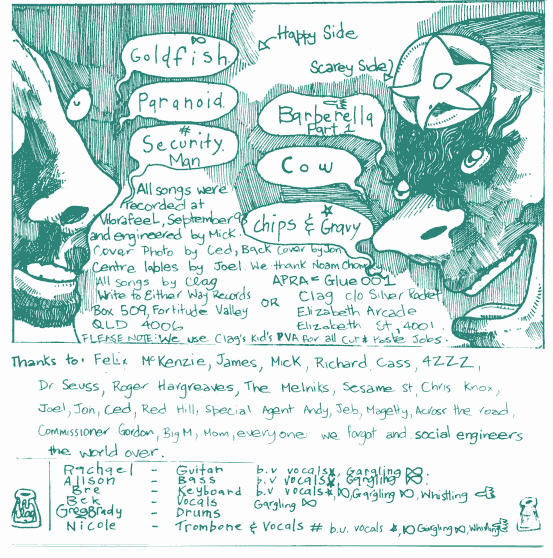 Happy Side
Scarey Side
Goldfish
Paranoid
#
Security
Man
Barberella
Part 1
Cow
Chips & Gravy
All songs were
recorded at
VibraFeel, September 98
and engineered by Mick.
Cover Photo by Ced, Back Cover by Jon
Centre lables by Joel. We thank Noam Chomsky
All songs by Clag
APRA = Glue 001
Write to Either Way Records
Box 509, Fortitude Valley
QLD 4006
OR
Clag c/o Silver Rocket
Elizabeth Arcade
Elizabeth St, 4001.
PLEASE NOTE: We use Clag's Kid's PVA for all Cut & Paste Jobs.
Thanks to: Felix McKenzie, James, Mick, Richard Cass, 4ZZZ,
Dr Seuss, Roger Hargreaves, The Melniks, Sesame St, Chris Knox,
Joel, Jon, Ced, Red Hill, Special Agent Andy, Jeb, Magetty, Across the road,
Commissioner Gordon, Big M, Mom, everyone we forgot and social engineers
the world over.
Rachael - Guitar b.v vocals, Gargling
Alison - Bass b.v vocals, Gargling
Bre - Keyboard b.v vocals, Gargling, Whistling
Bek - Vocals Gargling
Greg Brady - Drums
Nicole - Trombone & Vocals # b.v. vocals, Gargling, Whistling